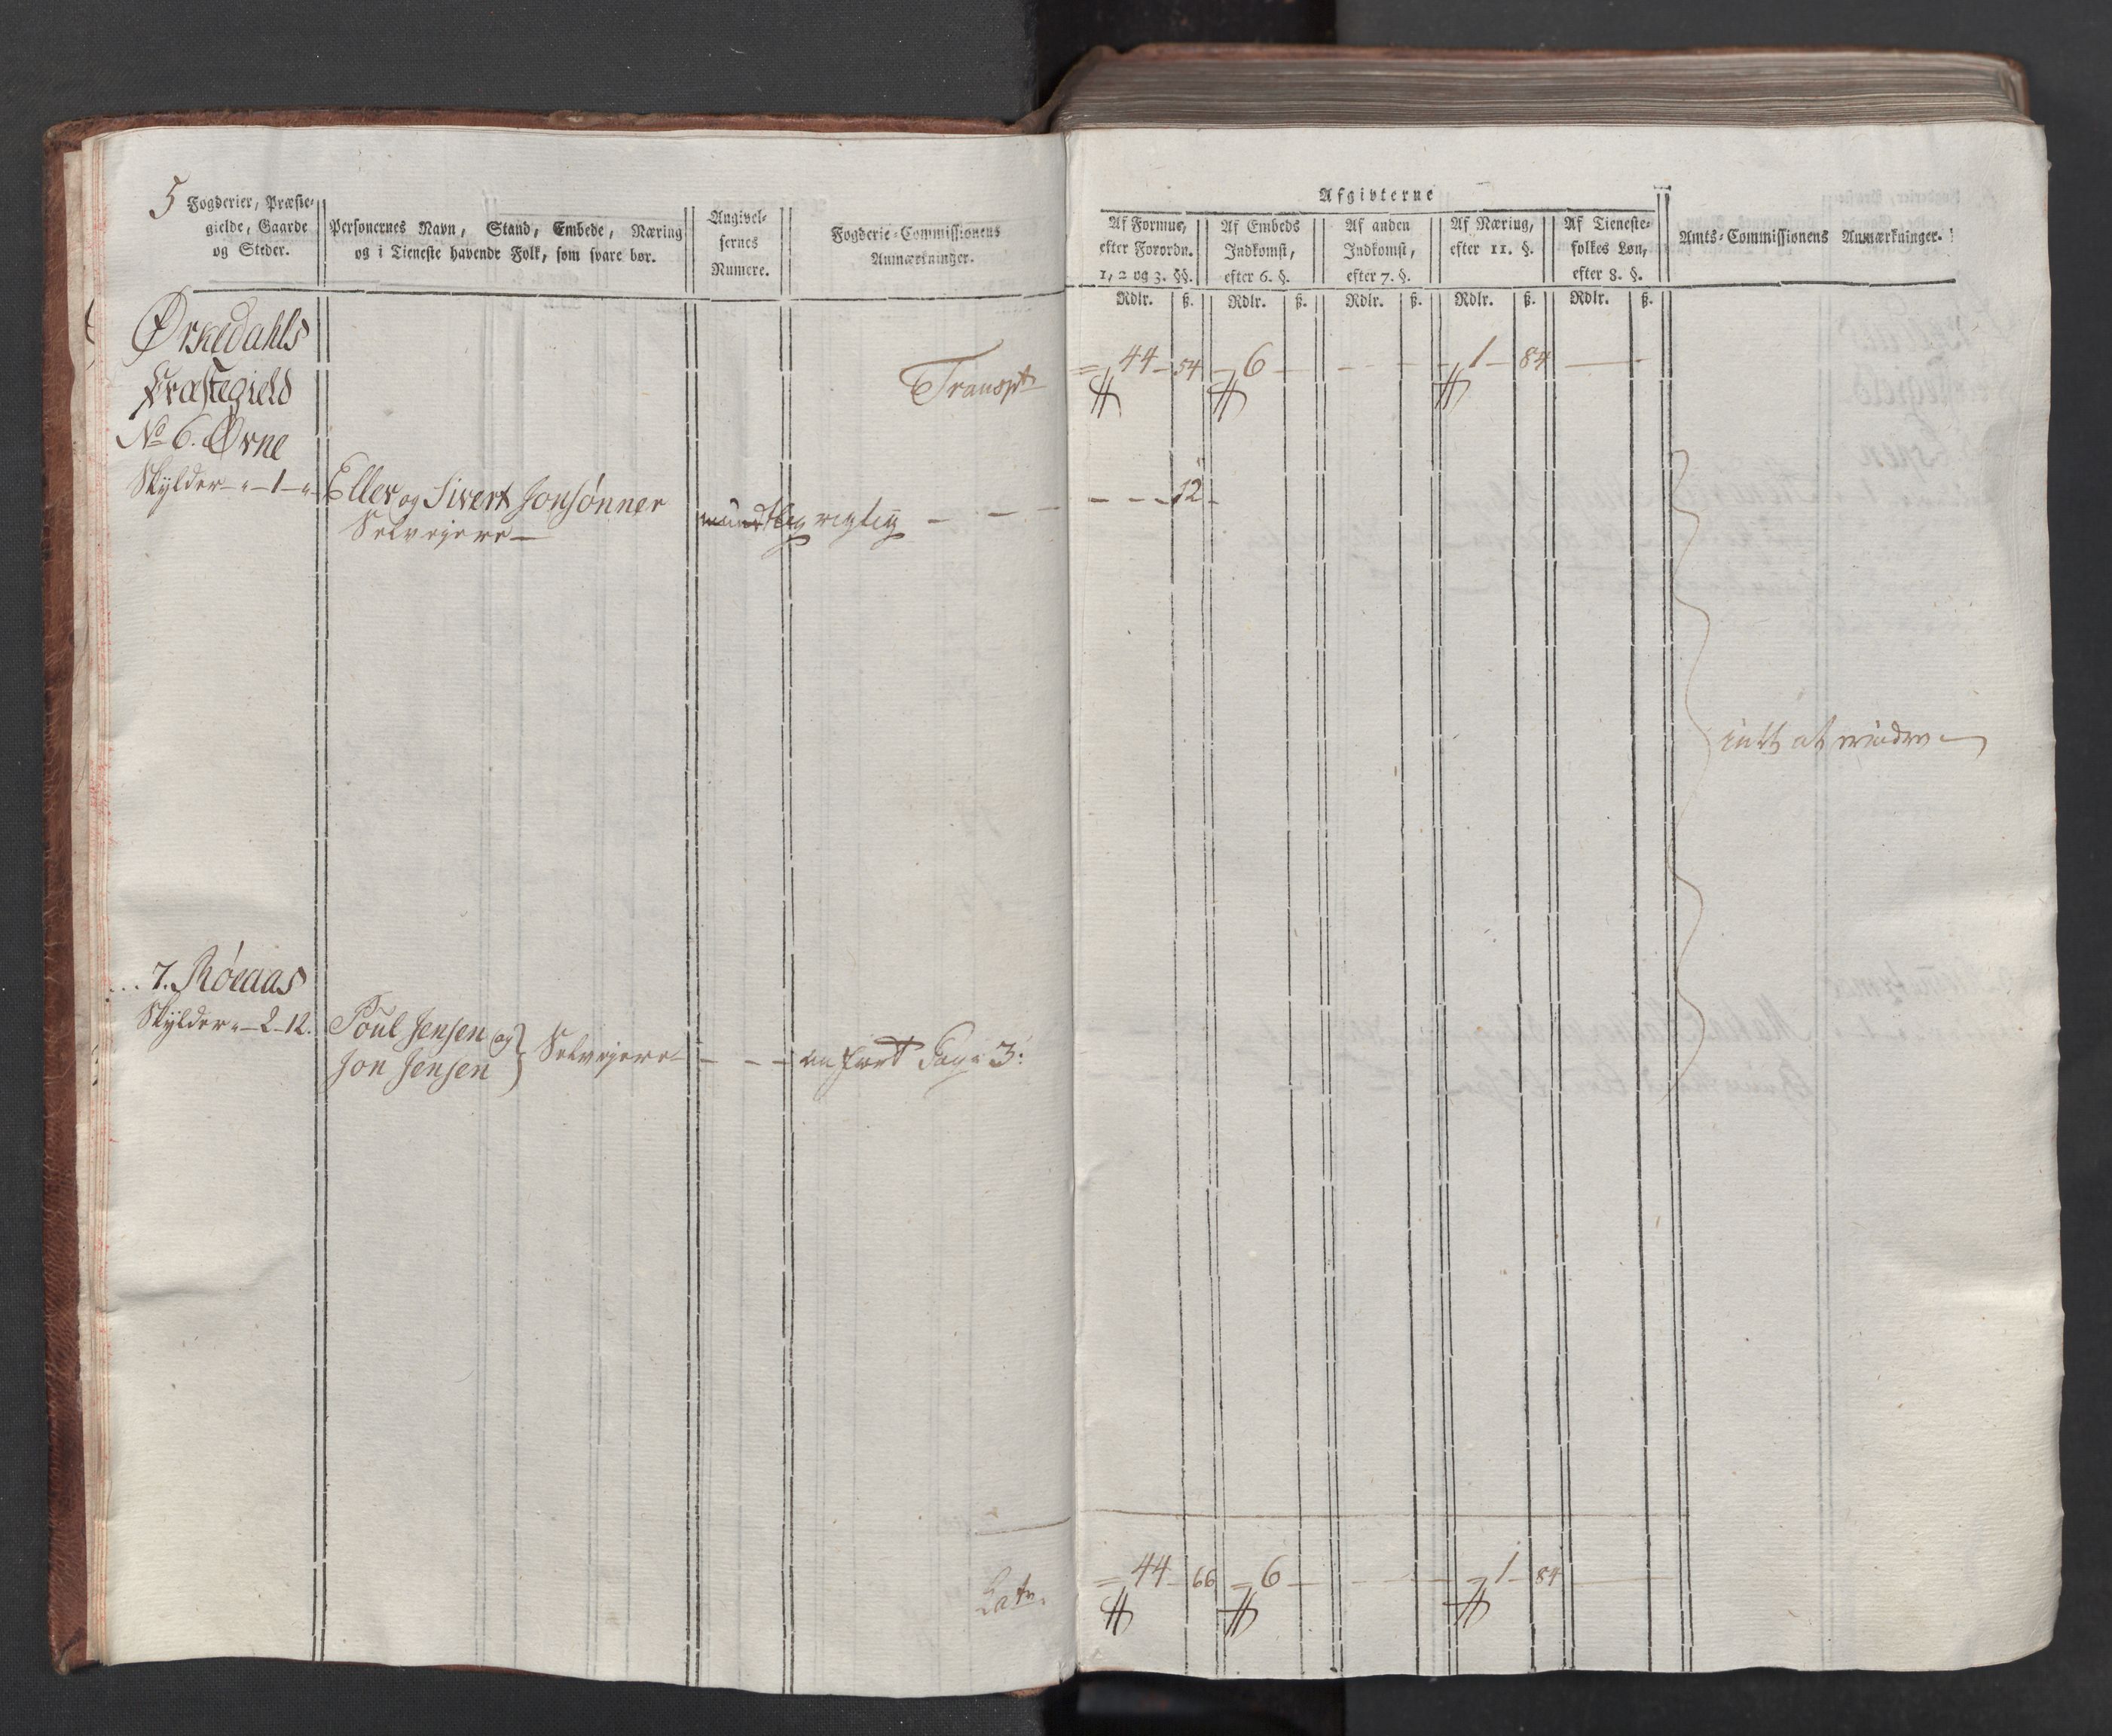 5
Fogderier, Præste-
gielde, Gaarde
og Steder.
Personernes Navn, Stand, Embede, Næring
og i Tieneste havende Folk, som svare bør.
Angivel-
sernes
Numere.
Fogderie-Commissionens
Anmærkninger.
Afgivterne
Af Formue,
efter Forordn.
1, 2 og 3. §§.
Af Embeds
Indkomst,
efter 6. §.
Af anden
Indkomst,
efter 7. §.
Af Næring,
efter 11. §.
Af Tieneste-
folkes Løn,
efter 8. §.
Amts-Commissionens Anmærkninger.
Rdlr. ß. Rdlr. ß. Rdlr. ß. Rdlr. ß. Rdlr. ß.
Ørkedahls
Præstegield
Transpt 44 54 6 1 84
No 6. Ørne
Skylder - " - 1 - "
Eller og Sivert Jonsønner
Selvejere
mundtlig rigtig 12
intet at erindre
7. Róeaas
Skylder " - 2 - 12.
Poul Jensen og
Jon Jensen
Selvejere
anført Pag: 3:
Latr. 44 66 6 1 84